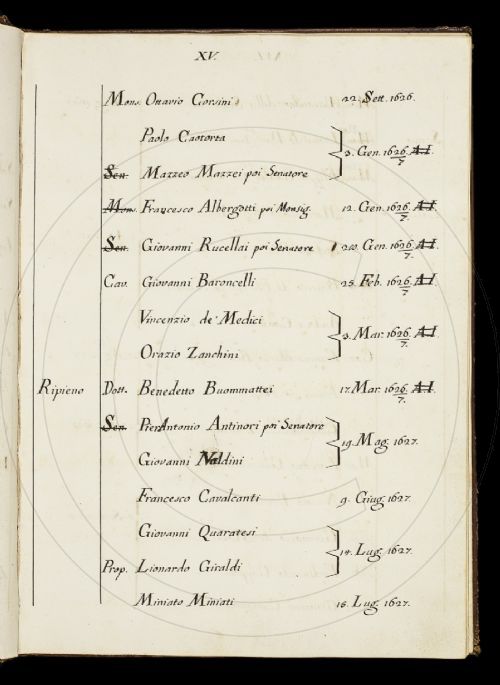 XV.
Mons. Ottavio Corsini 22. Sett. 1626.
Paolo Caotorta
3. Gen. 1626/7. A.I.
Sen. Mazzeo Mazzei poi Senatore
Mons. Francesco Albergotti poi Monsig. 12. Gen. 1626/7. A.I.
Sen. Giovanni Rucellai poi Senatore Gen. 1626/7. A.I.
Cav. Giovanni Baroncelli 25. Feb. 1626/7 A.I.
Vincenzio de' Medici
3. Mar. 1626/7. A.I.
Orazio Zanchini
Ripieno Dott. Benedetto Buommattei 17. Mar. 1626/7. A.I.
Sen. PierAntonio Antinori poi Senatore
19. Mag. 1627.
Giovanni Naldini
Francesco Cavalcanti 9. Giug. 1627.
Giovanni Quaratesi
14. Lug. 1627.
Prop. Lionardo Giraldi
Miniato Miniati 16. Lug. 1627.